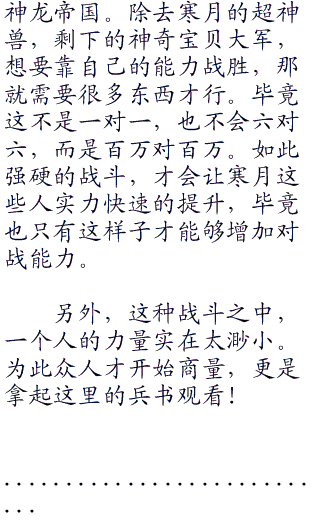 神龙帝国。除去寒月的超神
兽，剩下的神奇宝贝大军，
想要靠自己的能力战胜，那
就需要很多东西才行。毕竟
这不是一对一，也不会六对
六，而是百万对百万。如此
强硬的战斗，才会让寒月这
些人实力快速的提升，毕竟
也只有这样子才能够增加对
战能力。
　　另外，这种战斗之中，
一个人的力量实在太渺小。
为此众人才开始商量，更是
拿起这里的兵书观看！
．．．．．．．．．．．．．．．．．．．．．．．．．
．．．